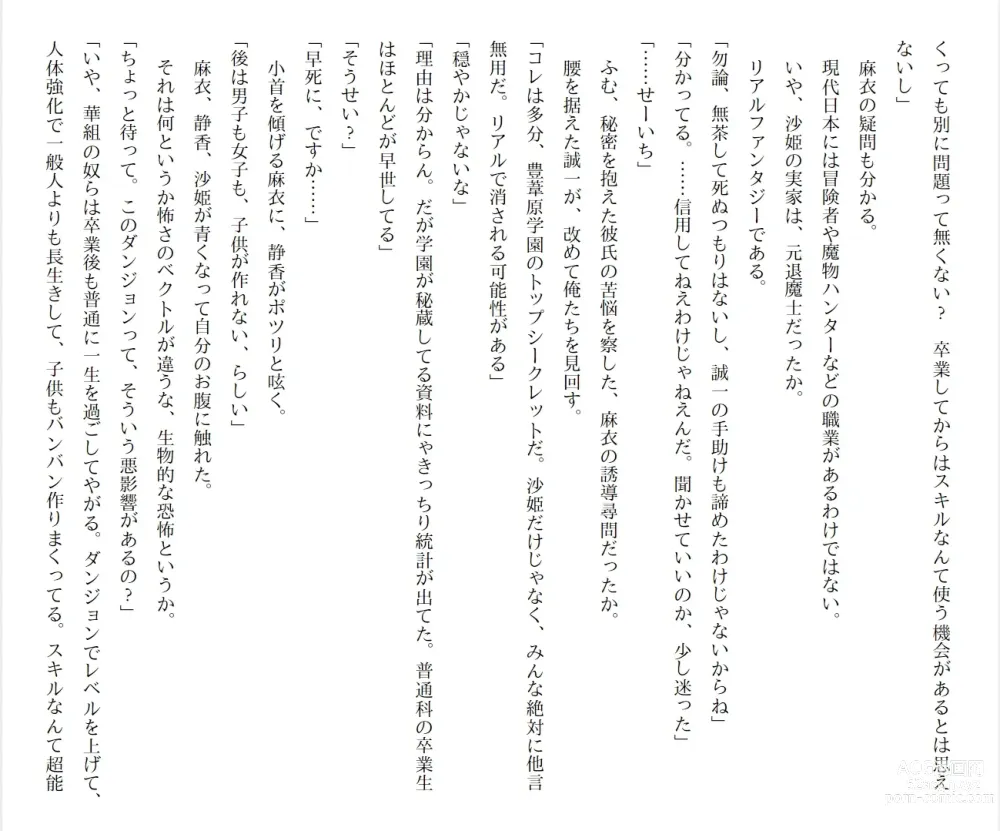 くっても別に問題って無くない？　卒業してからはスキルなんて使う機会があるとは思え
ないし」
麻衣の疑問も分かる。
現代日本には冒険者や魔物ハンターなどの職業があるわけではない。
いや、沙姫の実家は、元退魔士だったか。
リアルファンタジーである。
「勿論、無茶して死ぬつもりはないし、誠一の手助けも諦めたわけじゃないからね」
「分かってる。……信用してねえわけじゃねえんだ。聞かせていいのか、少し迷った」
「……せーいち」
ふむ、秘密を抱えた彼氏の苦悩を察した、麻衣の誘導尋問だったか。
腰を据えた誠一が、改めて俺たちを見回す。
「コレは多分、豊葦原学園のトップシークレットだ。沙姫だけじゃなく、みんな絶対に他言
無用だ。リアルで消される可能性がある」
「穏やかじゃないな」
「理由は分からん。だが学園が秘蔵してる資料にゃきっちり統計が出てた。普通科の卒業生
はほとんどが早世してる」
「そうせい？」
「早死に、ですか……」
小首を傾げる麻衣に、静香がポツリと呟く。
「後は男子も女子も、子供が作れない、らしい」
麻衣、静香、沙姫が青くなって自分のお腹に触れた。
それは何というか怖さのベクトルが違うな、生物的な恐怖というか。
「ちょっと待って。このダンジョンって、そういう悪影響があるの？」
「いや、華組の奴らは卒業後も普通に一生を過ごしてやがる。ダンジョンでレベルを上げて、
人体強化で一般人よりも長生きして、子供もバンバン作りまくってる。スキルなんて超能